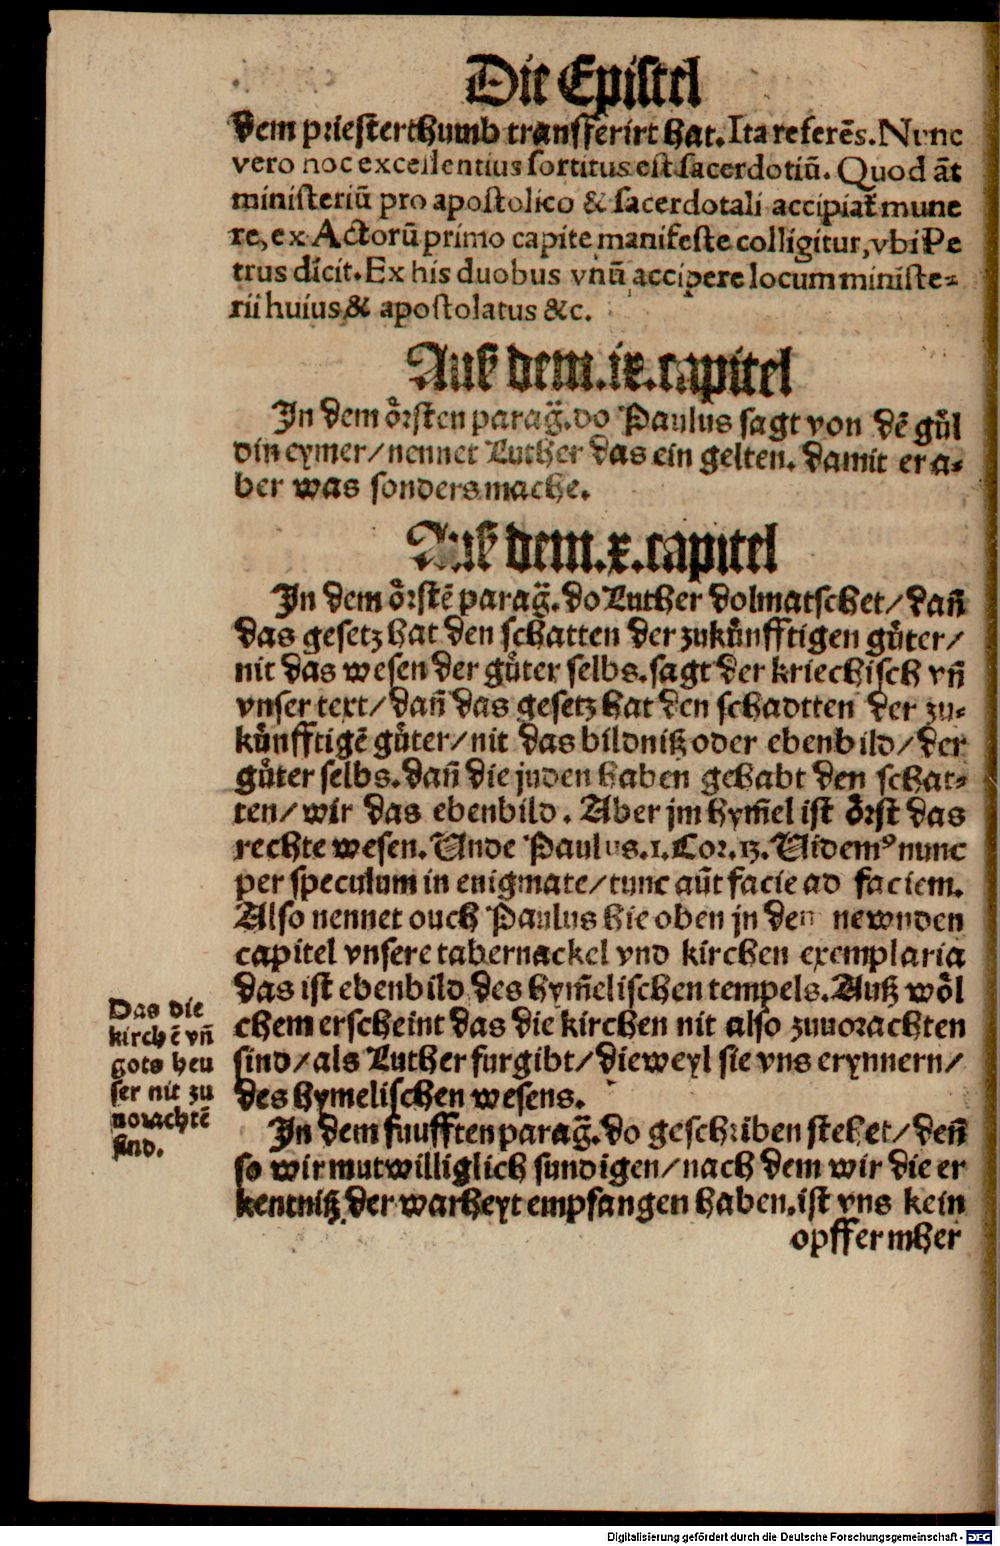 Die Epistel
dem priesterthumb transsferirt hat. Ita referẽs. Nunc
vero hoc excellentius sortitus est sacerdotiũ. Quod ãt
ministeriũ pro apostolico & sacerdotali accipiat᷑ mune
re, ex Actorũ primo capite manifeste colligitur, vbi Pe
trus dicit. Ex his duobus vnũ accipere locum ministe-
rii huius & apostolatus &c.
Auß dem .ix. capitel
In dem oͤrsten parag̃. do Paulus sagt von dẽ guͤl
din eymer/ nennet Luther das ein gelten. damit er a-
ber was sonders mache.
Auß dem .x. capitel
In dem oͤrstẽ parag̃. do Luther dolmatschet/ dañ
das gesetz hat den schatten der zukuͤnfftigen guͤter/
nit das wesen der guͤter selbs. sagt der kriechisch vñ
vnser text/ dañ das gesetz hat den schadtten der zu-
kuͤnfftigẽ guͤter/ nit das bildniß oder ebenbild/ der
guͤter selbs. dañ die juden haben gehabt den schat-
ten/ wir das ebenbild. Aber jm hym̃el ist oͤrst das
rechte wesen. Unde Paulus. 1. Cor. 13. Uidemꝰ nunc
per speculum in enigmate/ tunc aũt facie ad faciem.
Also nennet ouch Paulus hie oben jn den newnden
capitel vnsere tabernackel vnd kirchen exemplaria
das ist ebenbild des hym̃elischen tempels. Auß woͤl
chem erscheint das die kirchen nit also zuuorachten
sind/ als Luther furgibt/ dieweyl sie vns erynnern/
des hymelischen wesens.
Das die
kirchẽ vñ
gots heu
ser nit zu
uorachtẽ
sind.
In dem fuufften parag̃. do geschriben stehet/ deñ
so wir mutwilliglich sundigen/ nach dem wir die er
kentniß der warheyt empfangen haben. ist vns kein
opffer mher
Digitalisierung gefördert durch die Deutsche Forschungsgemeinschaft - DFG